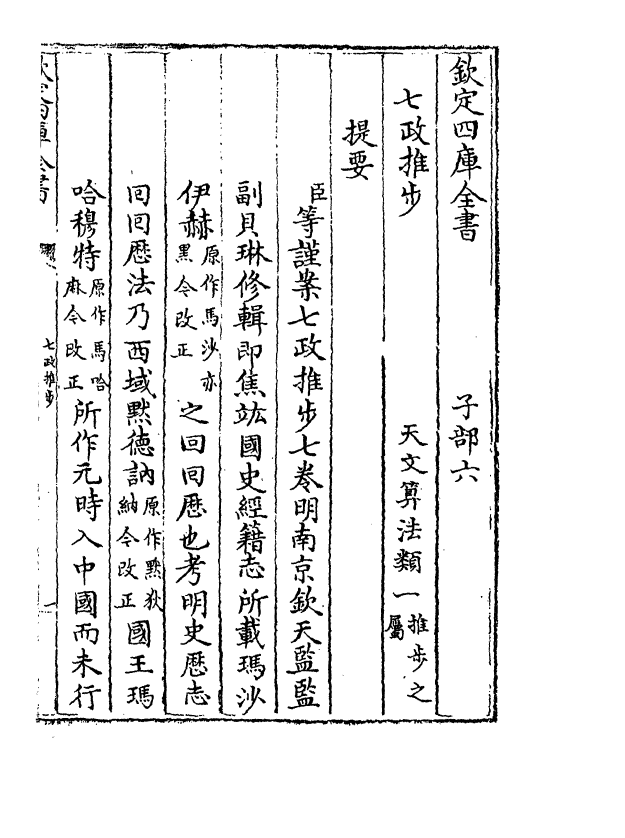 欽定四庫全書　　　子部六
七政推步　　　天文算法類一推步之屬
提要
臣等謹案七政推步七卷明南京欽天監監
副貝琳修輯即焦竑國史經籍志所載瑪沙
伊赫原作馬沙亦黑今改正之回回厯也考明史厯志
回回厯法乃西域默德訥原作默狄納今改正國王瑪
哈穆特原作馬哈麻今改正所作元時入中國而未行
欽定四庫全書
七政推步
一